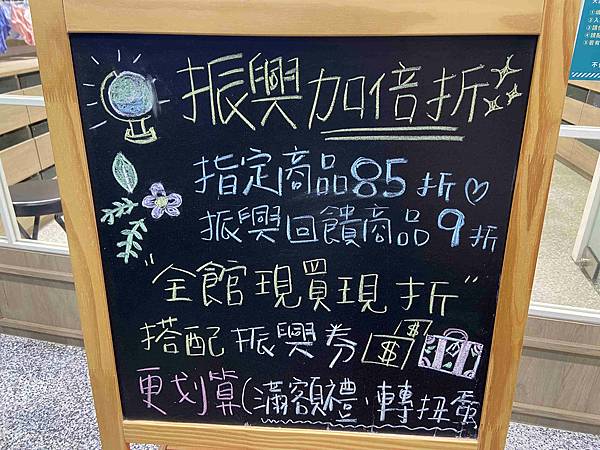 振興加倍折
指定商品85折♡
振興回饋商品9折
"全館現買現折"
搭配振興券 $ $
更划算(滿額禮、轉扭蛋